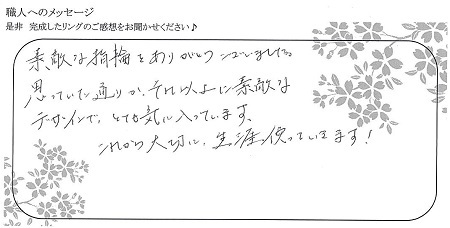 職人へのメッセージ
是非 完成したリングのご感想をお聞かせください♪
素敵な指輪をありがとうございました。
思っていた通りか、それ以上に素敵な
デザインで、とても気に入っています。
これから大切に、生涯使っていきます！